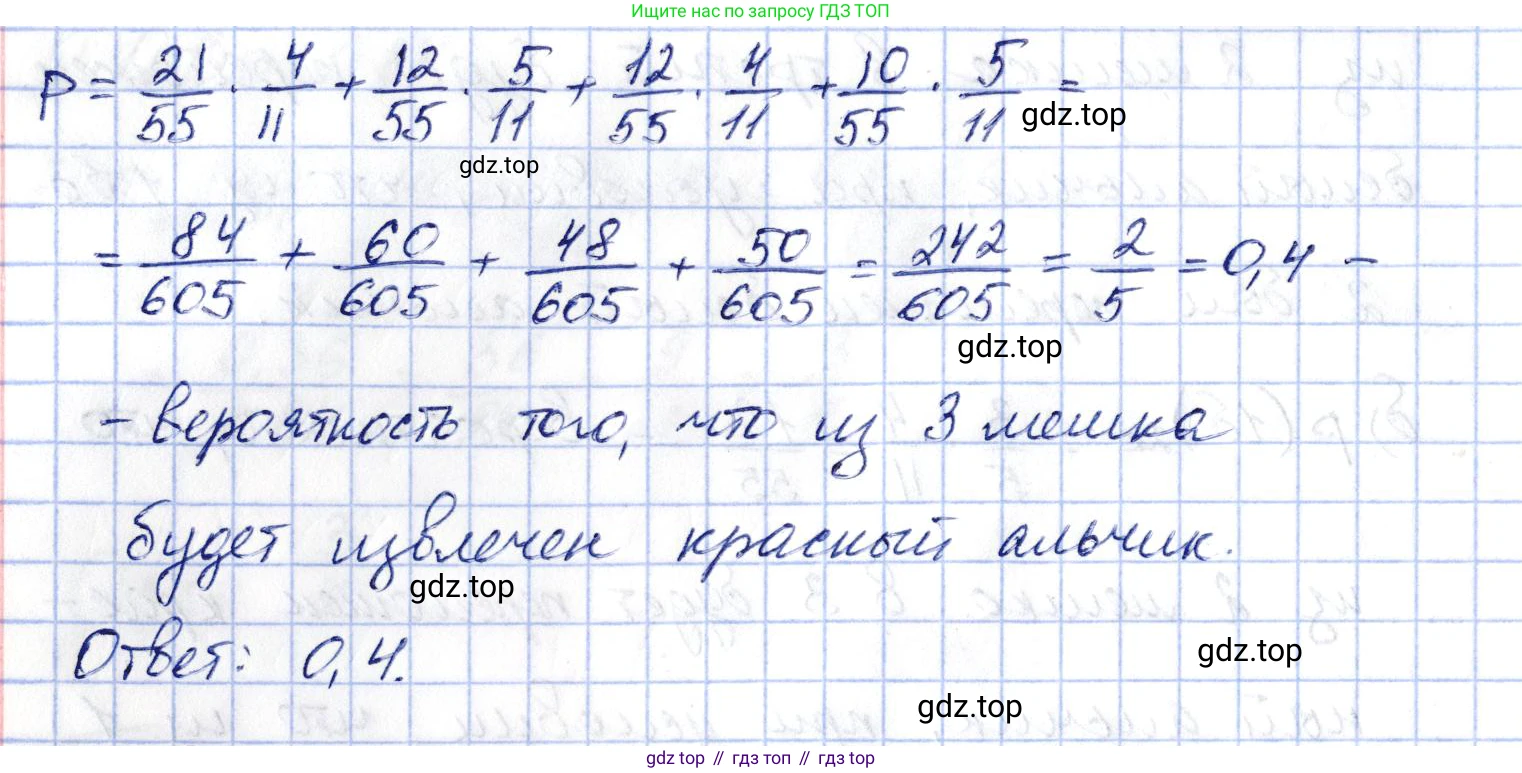 Ищите нас по запросу ГДЗ ТОП
P = 21/55 · 4/11 + 12/55 · 5/11 + 12/55 · 4/11 + 10/55 · 5/11 =
gdz.top
gdz.top
= 84/605 + 60/605 + 48/605 + 50/605 = 242/605 = 2/5 = 0,4 -
gdz.top
- вероятность того, что из 3 мешка
будет извлечен красный альчик.
gdz.top
Ответ: 0,4.
gdz.top
gdz.top
gdz top // гдз топ // гдз top